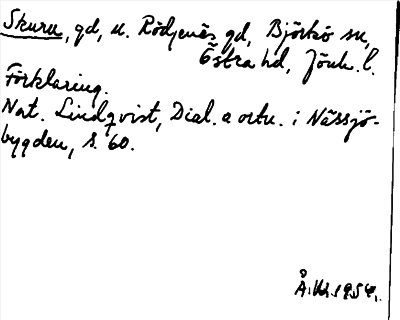 Skuru, gd, u. Rödjenäs gd, Björkö sn,
Östra hd, Jönk. l.
Förklaring.
Nat. Lindqvist, Dial. a ortn. i Nässjö-
bygden, s. 60.
1954.